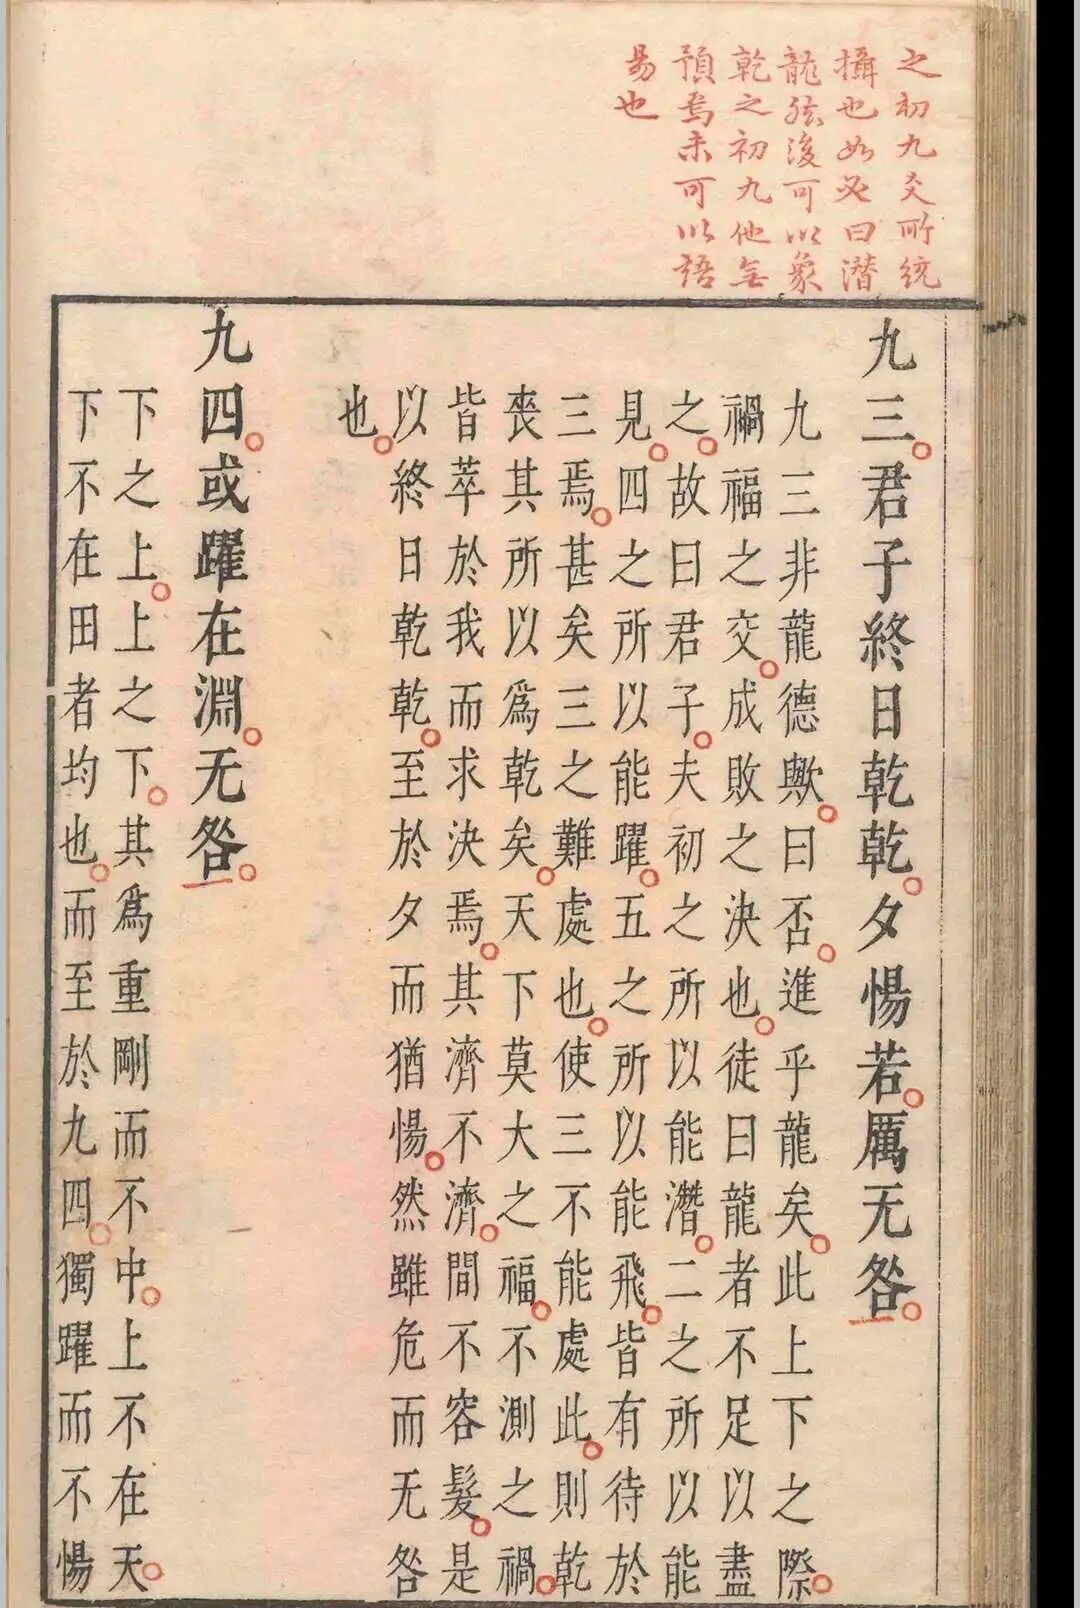 之初九爻所統
攝也如必曰潛
龍然後可以象
乾之初九他無
預焉未可以語
易也
九三君子終日乾乾夕惕若厲无咎
九三非龍德歟曰否進乎龍矣此上下之際
禍福之交成敗之決也徒曰龍者不足以盡
之故曰君子夫初之所以能潛二之所以能
見四之所以能躍五之所以能飛皆有待於
三焉甚矣三之難處也使三不能處此則乾
喪其所以爲乾矣天下莫大之福不測之禍
皆萃於我而求決焉其濟不濟間不容髮是
以終日乾乾至於夕而猶惕然雖危而无咎
也
九四或躍在淵无咎
下之上上之下其爲重剛而不中上不在天
下不在田者均也而至於九四獨躍而不惕